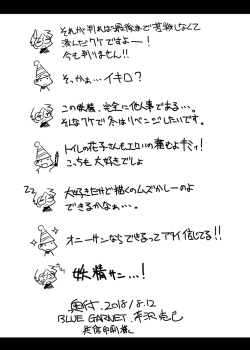 それが判れば最後まで苦労しなくて
済んだワケですよー！
今も判りません!!
そっかぁ…イキロ？
この妖精、完全に他人事である…。
そんなワケで冬はリベンジしたいです。
トイレの花子さんもエロいの着もよキミィ！
こっちも大好きでしょ
大好きだけど描くのムズかしーのよ
できるかなぁ…。
オニーサンならできるってアタイ信じてる!!
妖精サン…！
奥付. 2018/8.12
BLUE GARNET.